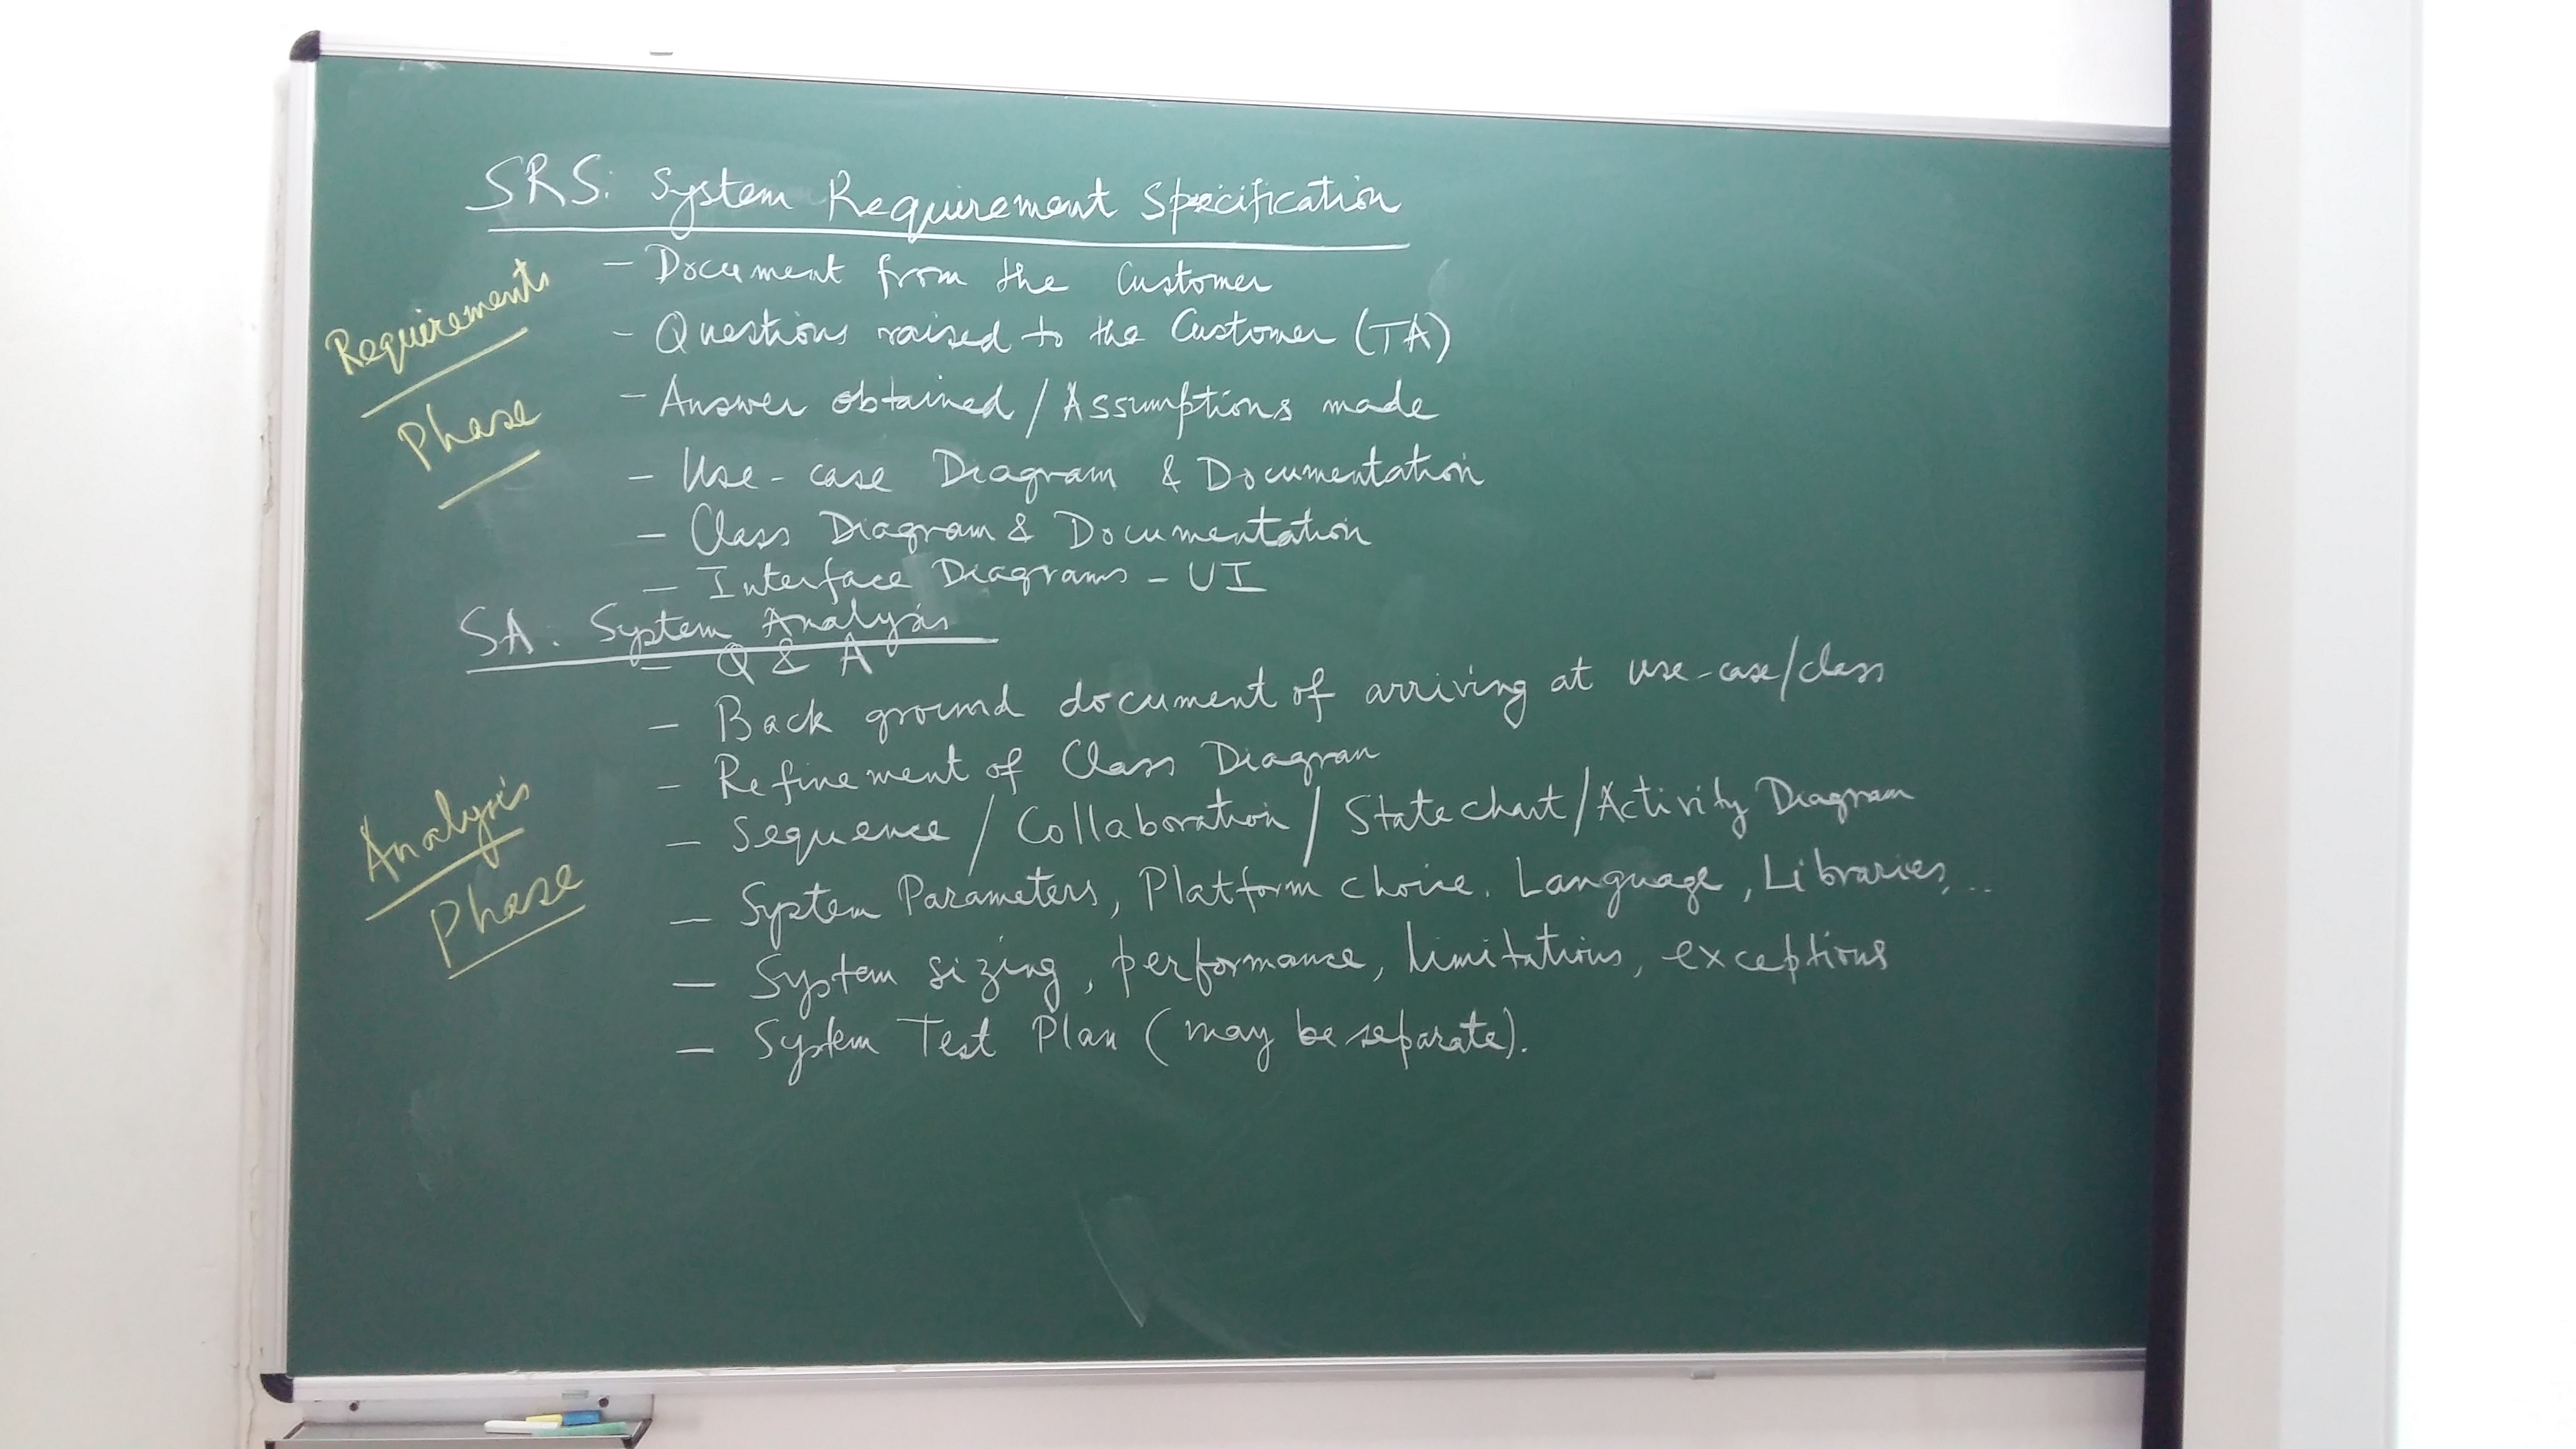 SRS: System Requirement Specification
Requirements
Phase
- Document from the Customer
- Questions raised to the Customer (TA)
- Answer obtained / Assumptions made
- Use-case Diagram & Documentation
- Class Diagram & Documentation
- Interface Diagrams - UI
SA: System Analysis
Analysis
Phase
- Q & A
- Back ground document of arriving at use-case/class
- Refinement of Class Diagram
- Sequence / Collaboration / State chart / Activity Diagram
- System Parameters, Platform choice. Language, Libraries, ..
- System sizing, performance, limitations, exceptions
- System Test Plan (may be separate).